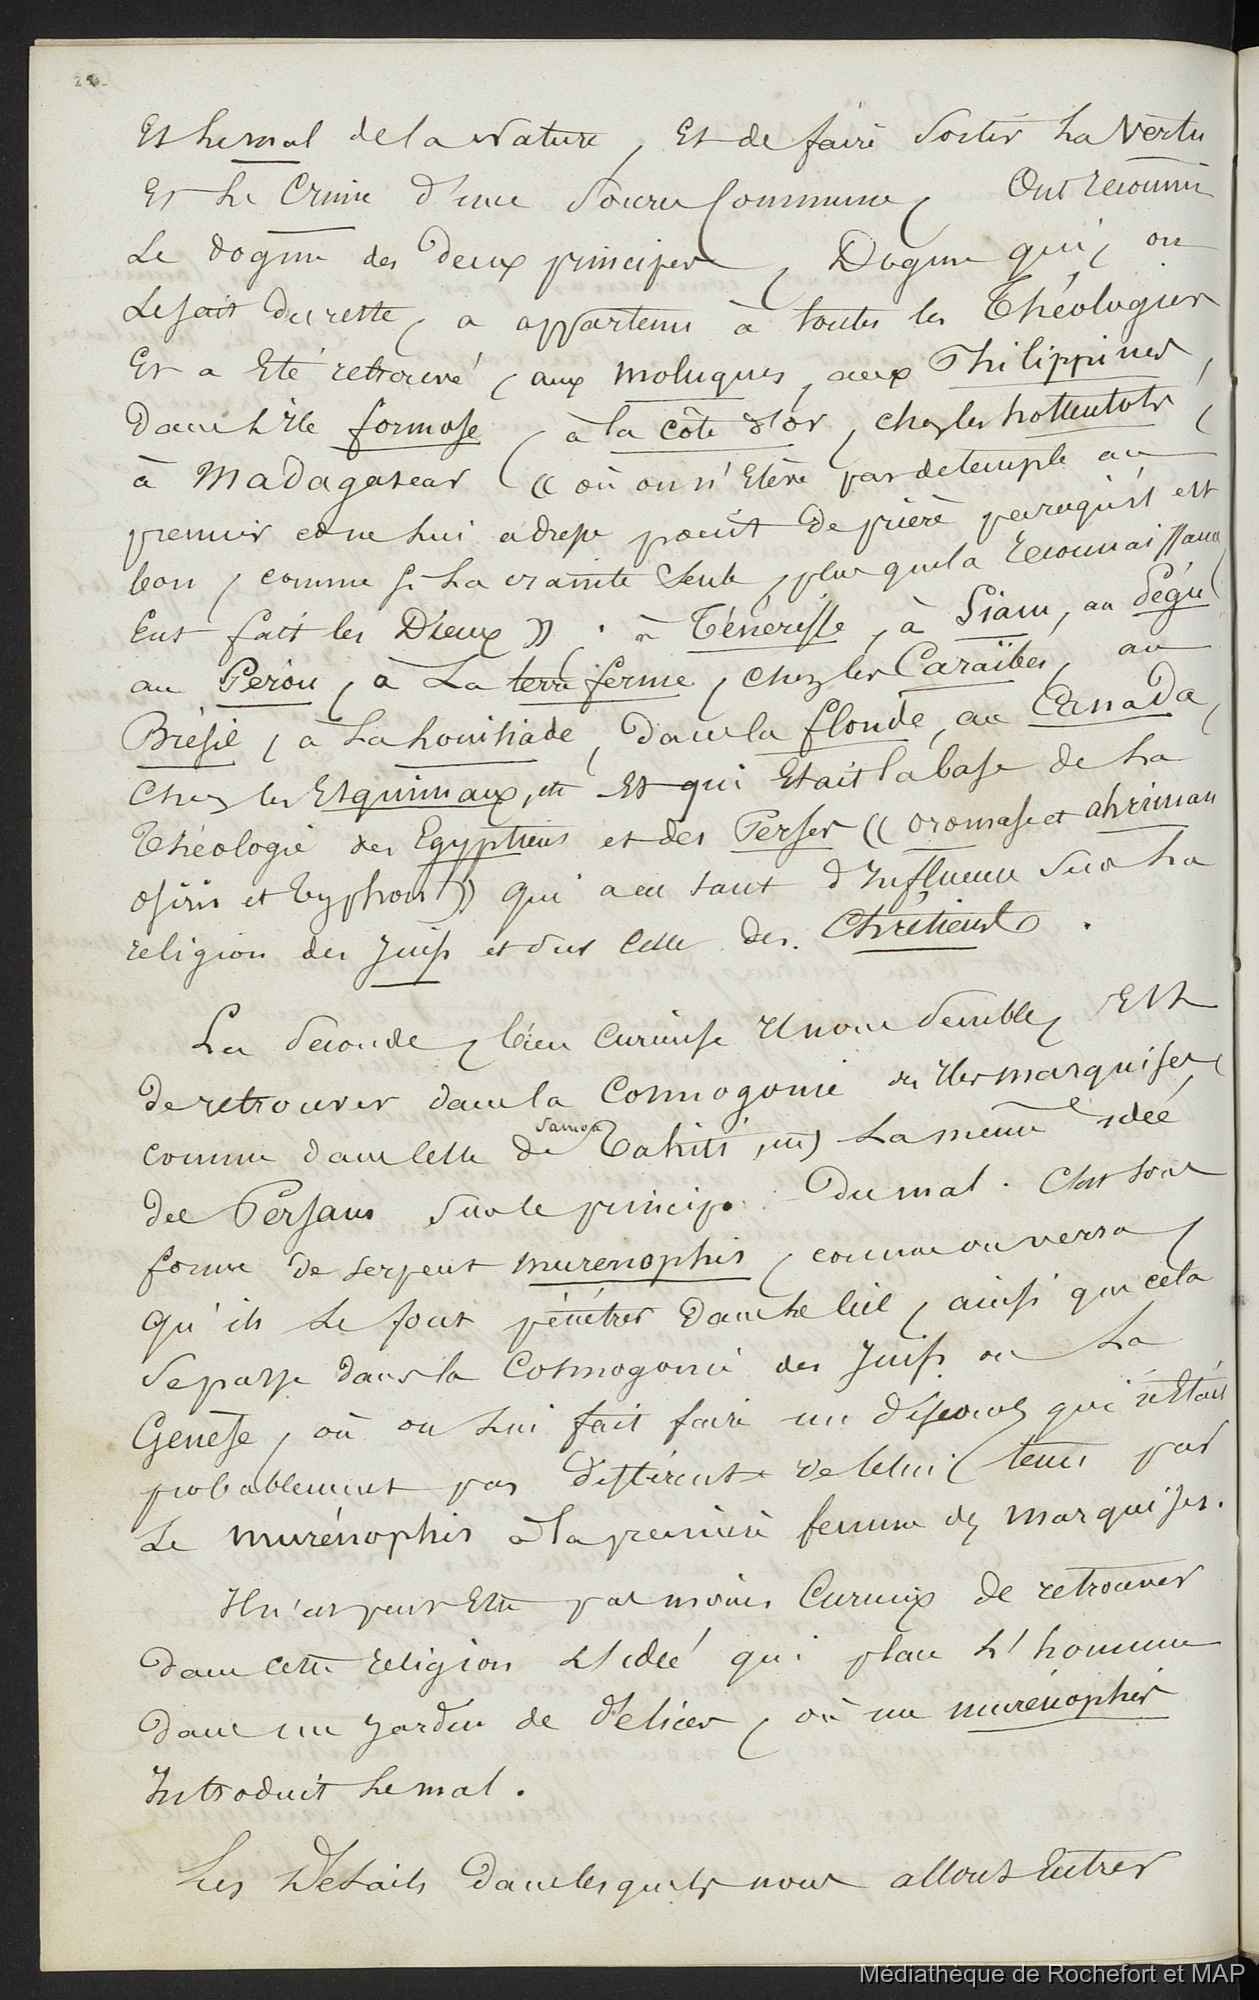 Et le mal de la Nature, Et de faire Sortir La Vertu
Et le Crime d'une Source Commune, Ont reconnu
Le dogme des deux principes, Dogme qui, on
Le sait du reste, a appartenu à toutes les Théologies
Et a Eté retrouvé, aux moluques, aux Philippines,
Dans L'Ile formose, à la côte d'or, chez les hottentots,
à Madagascar ((où on n'Elève pas de temple au
premier et ne Lui adresse point de prière parcequ'il est
bon, comme si La crainte Seule, plus que la reconnaissance
Eut fait les Dieux)), à Ténériffe, à Siam, au Pégu
au Pérou, à La terre ferme, chez les Caraïbes, au
Brésil, à La Louisiade, dans la floride, au Canada,
Chez les Esquimaux, etc Et qui Etait la base de La
Théologie des Egyptiens et des Perses ((oromase et ahriman
osiris et typhon)) qui a eu tant d'Influence Sur La
religion des Juifs et Sur Celle des Chrétiens.
La Seconde, bien curieuse Il nous Semble, Est
De retrouver dans la Cosmogonie des Iles marquises,
comme dans Celle de Samoa Tahiti, etc) La même idée
des Persans Sur le principe Du mal. C'est sous
forme de serpent murenophis, comme on verra,
qu'ils Le font pénétrer dans Le Ciel, ainsi que cela
Se passe dans la Cosmogonie des Juifs ou La
Genèse, où on Lui fait faire un discours qui n'Etait
probablement pas différent de Celui tenu par
Le murénophis à la première femme des marquises.
Il n'est peut Etre pas moins Curieux de retrouver
dans cette religion L'idée qui place L'homme
dans un Jardin de Délices, où un murénophis
Introduit Le mal.
Les Détails Dans lesquels nous allons Entrer
Médiathèque de Rochefort et MAP